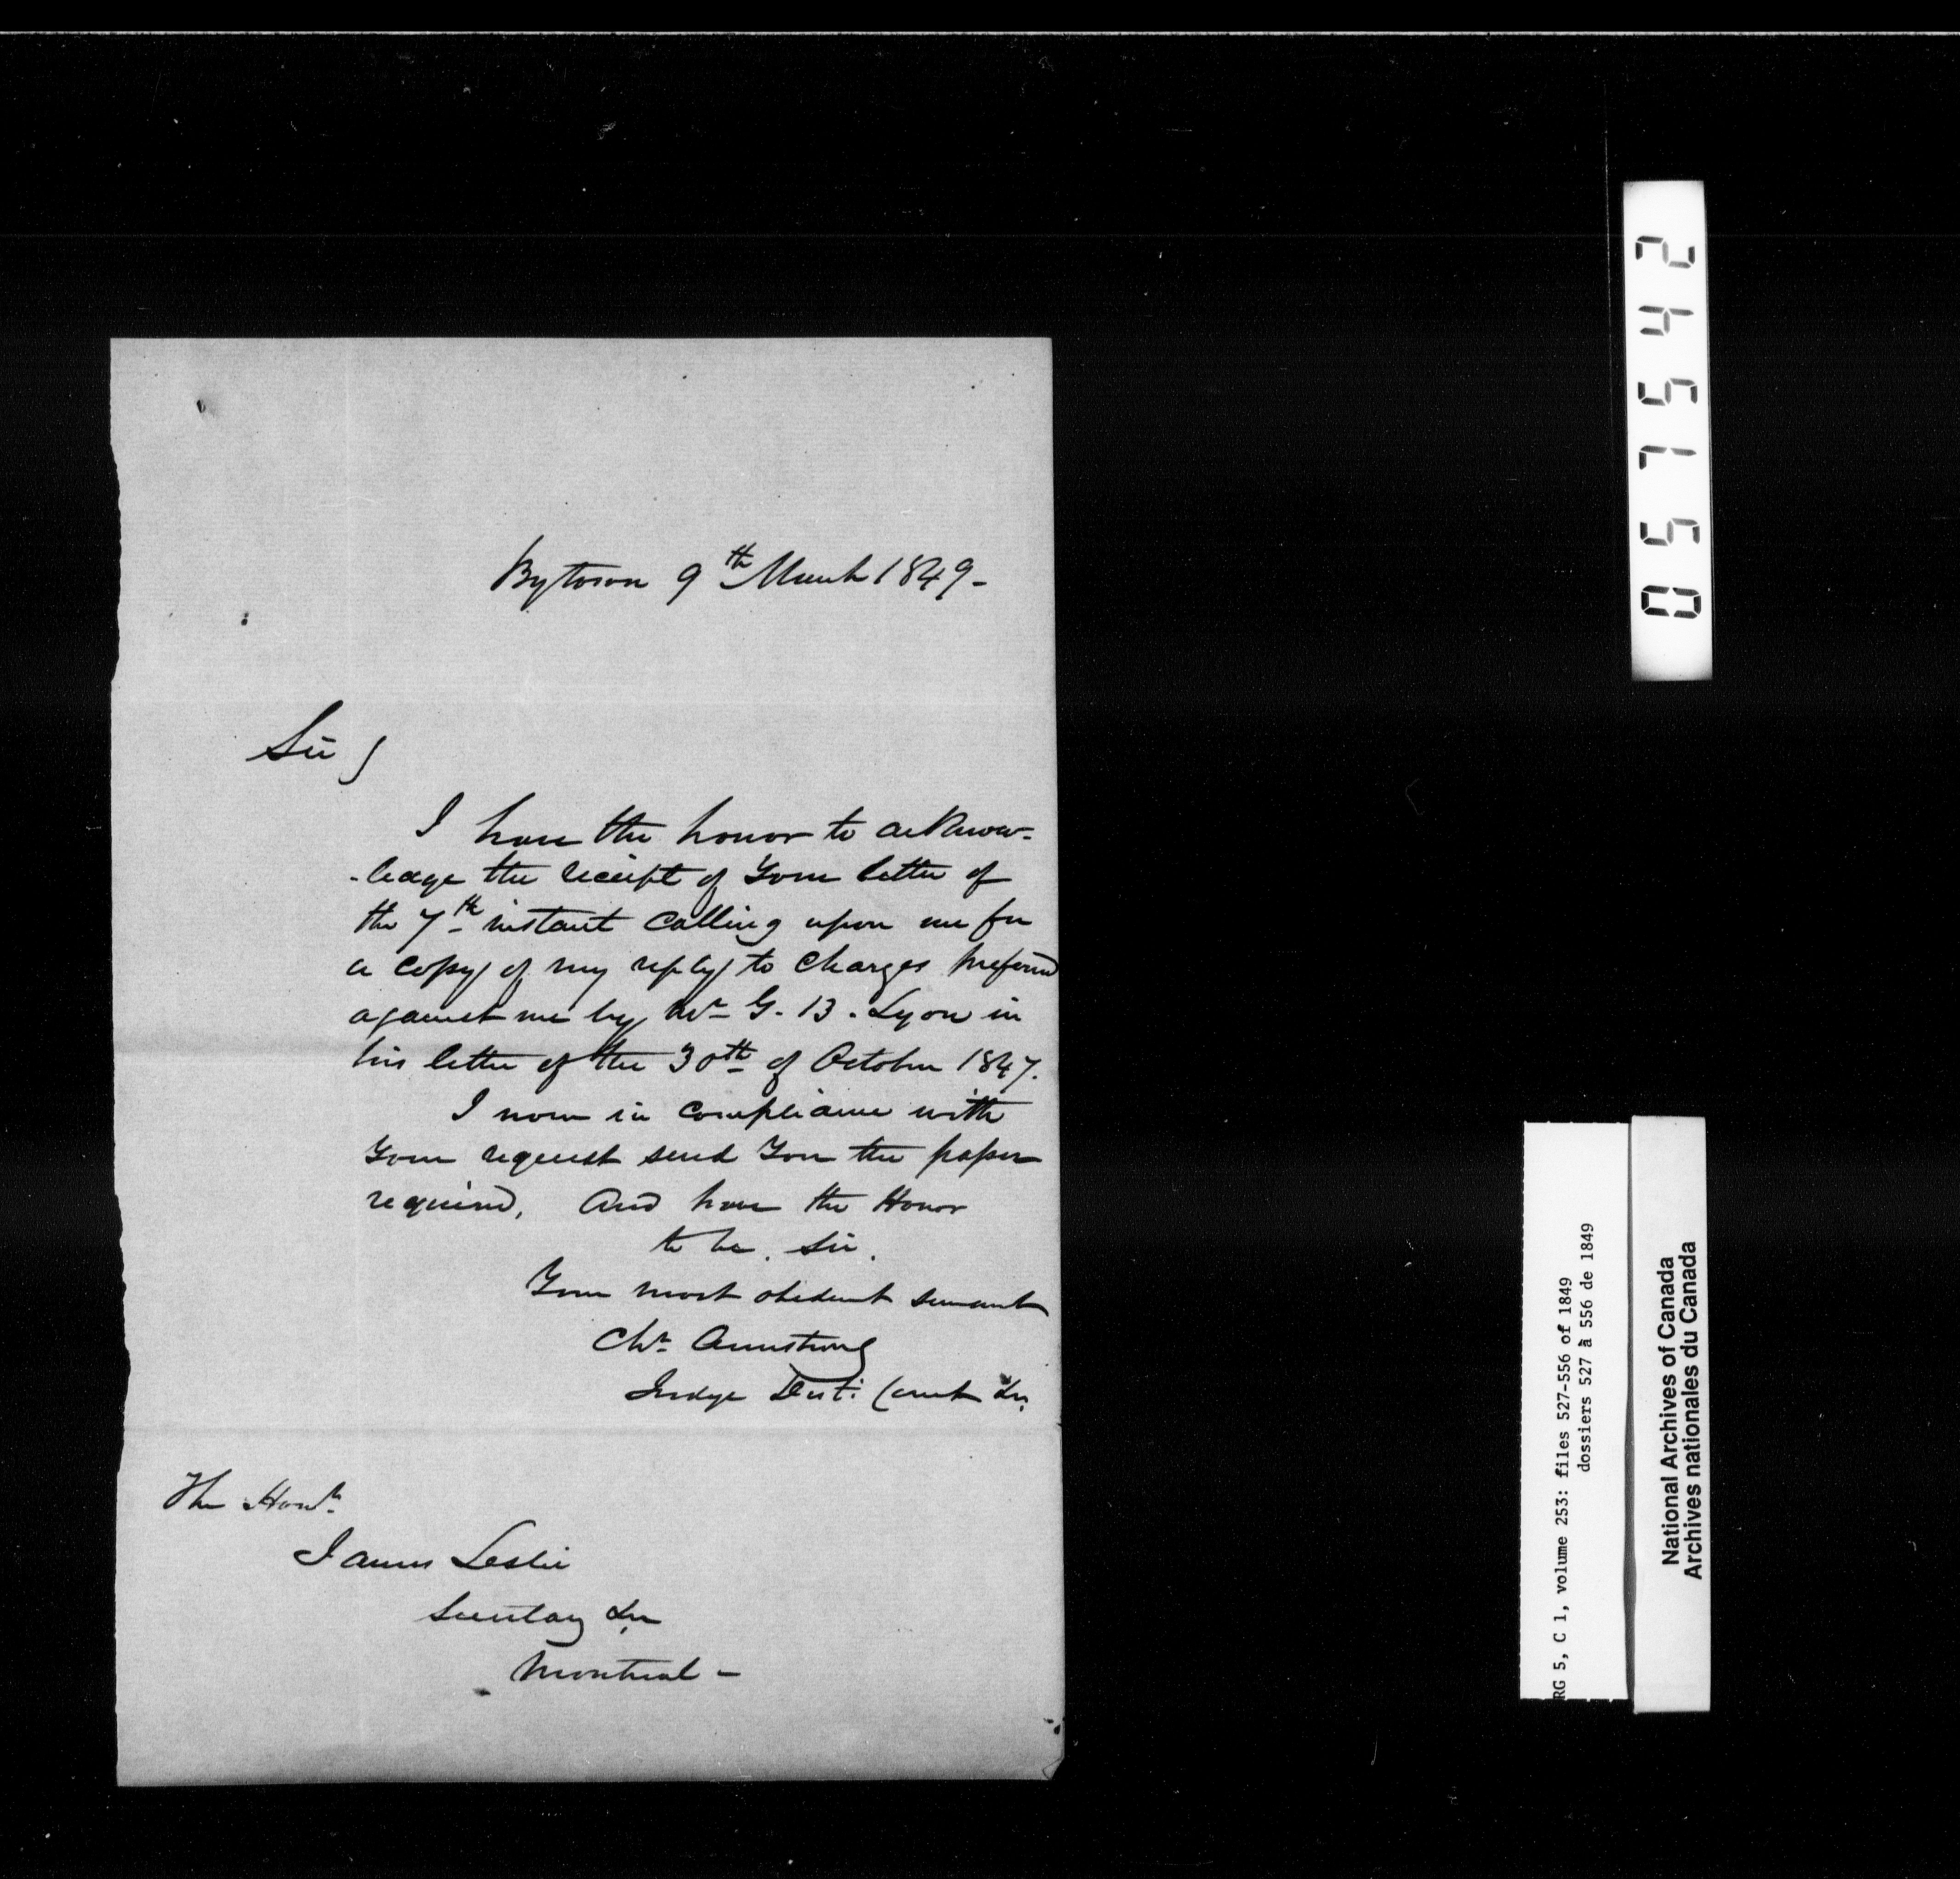 Bytown 9th March 1849-
Sir,
I have the honor to acknow-
-ledge the receipt of Your letter of
the 7th instant calling upon me for
a copy of my reply to charges preferred
against me by Mr G. B. Lyon in
his letter of the 30th of October 1847.
I now in compliance with
Your request send You the paper
required, And have the Honor
to be. Sir.
Your most obedient servant
Chr Armstrong
Judge Dist: Court &c.
The Honble
James Leslie
Secretary &c
Montreal -
057542
RG 5, C 1, volume 253: files 527-556 of 1849
dossiers 527 à 556 de 1849
National Archives of Canada
Archives nationales du Canada